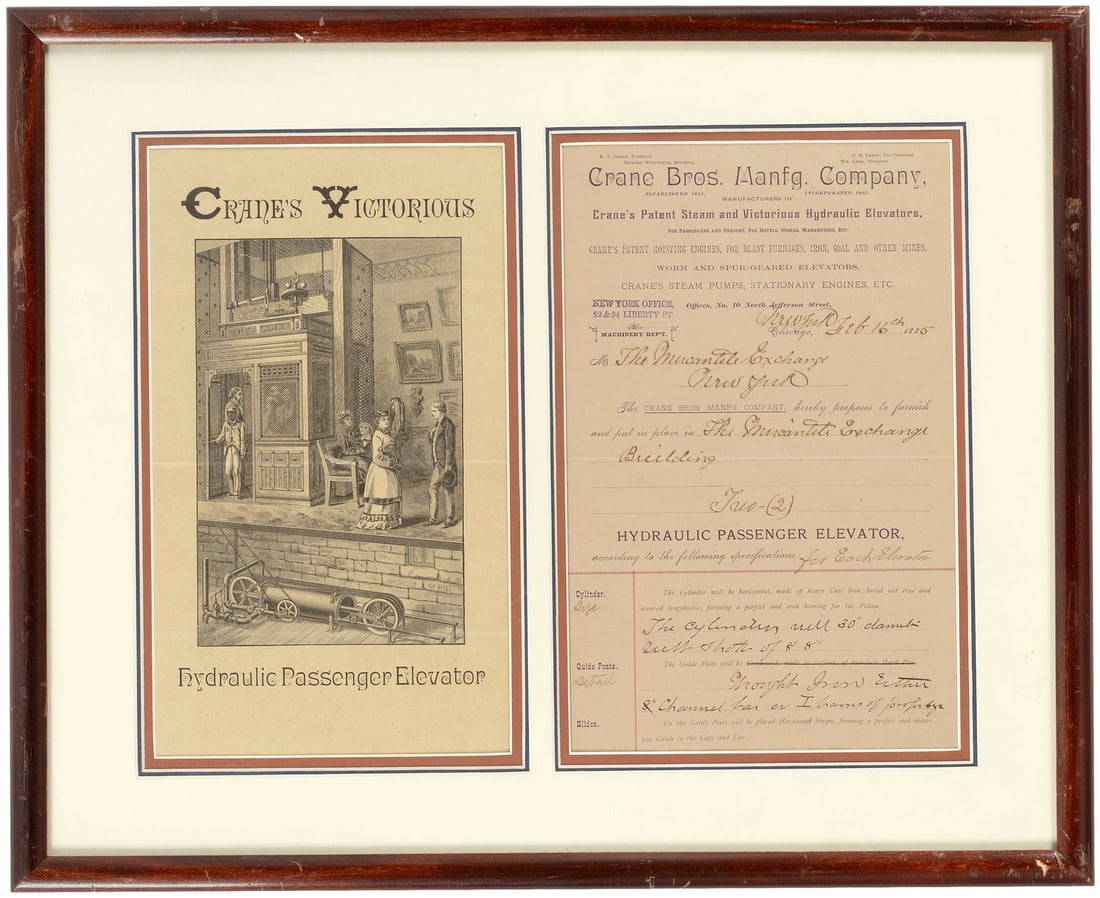 CRANE'S VICTORIOUS
Hydraulic Passenger Elevator
R. T. CRANE, President
C. S. CRANE, Vice-President
Crane Bros. Manfg. Company,
ESTABLISHED 1855. INCORPORATED 1865.
MANUFACTURERS OF
Crane's Patent Steam and Victorious Hydraulic Elevators,
FOR PASSENGERS AND FREIGHT, FOR HOTELS, STORES, WAREHOUSES, ETC.
CRANE'S PATENT HOISTING ENGINES, FOR BLAST FURNACES, IRON, COAL AND OTHER MINES.
WORM AND SPUR-GEARED ELEVATORS.
CRANE'S STEAM PUMPS, STATIONARY ENGINES, ETC.
NEW YORK OFFICE, Offices, No. 10 North Jefferson Street,
92 & 94 LIBERTY ST.
New York
Chicago, Feb 16th 1885
MACHINERY DEPT.
M The Mercantile Exchange
New York
The CRANE BROS MANFG COMPANY, hereby proposes to furnish
and put in place in The Mercantile Exchange
Building
Two-(2)
HYDRAULIC PASSENGER ELEVATOR,
according to the following specifications for Each Elevator
Cylinder. The Cylinder will be horizontal, made of heavy Cast Iron, bored out true and
Size scoured lengthwise, forming a perfect and even bearing for the Piston.
The Cylinders will 30" diameter
with Stroke of 8' 8"
Guide Posts. The Guide Posts will be
Detail Wrought Iron Either
8" Channel bar or I beams of proper size
Slides. On the Guide Posts will be placed Hardwood Strips, forming a perfect and noise-
less Guide to the Cage and Car.